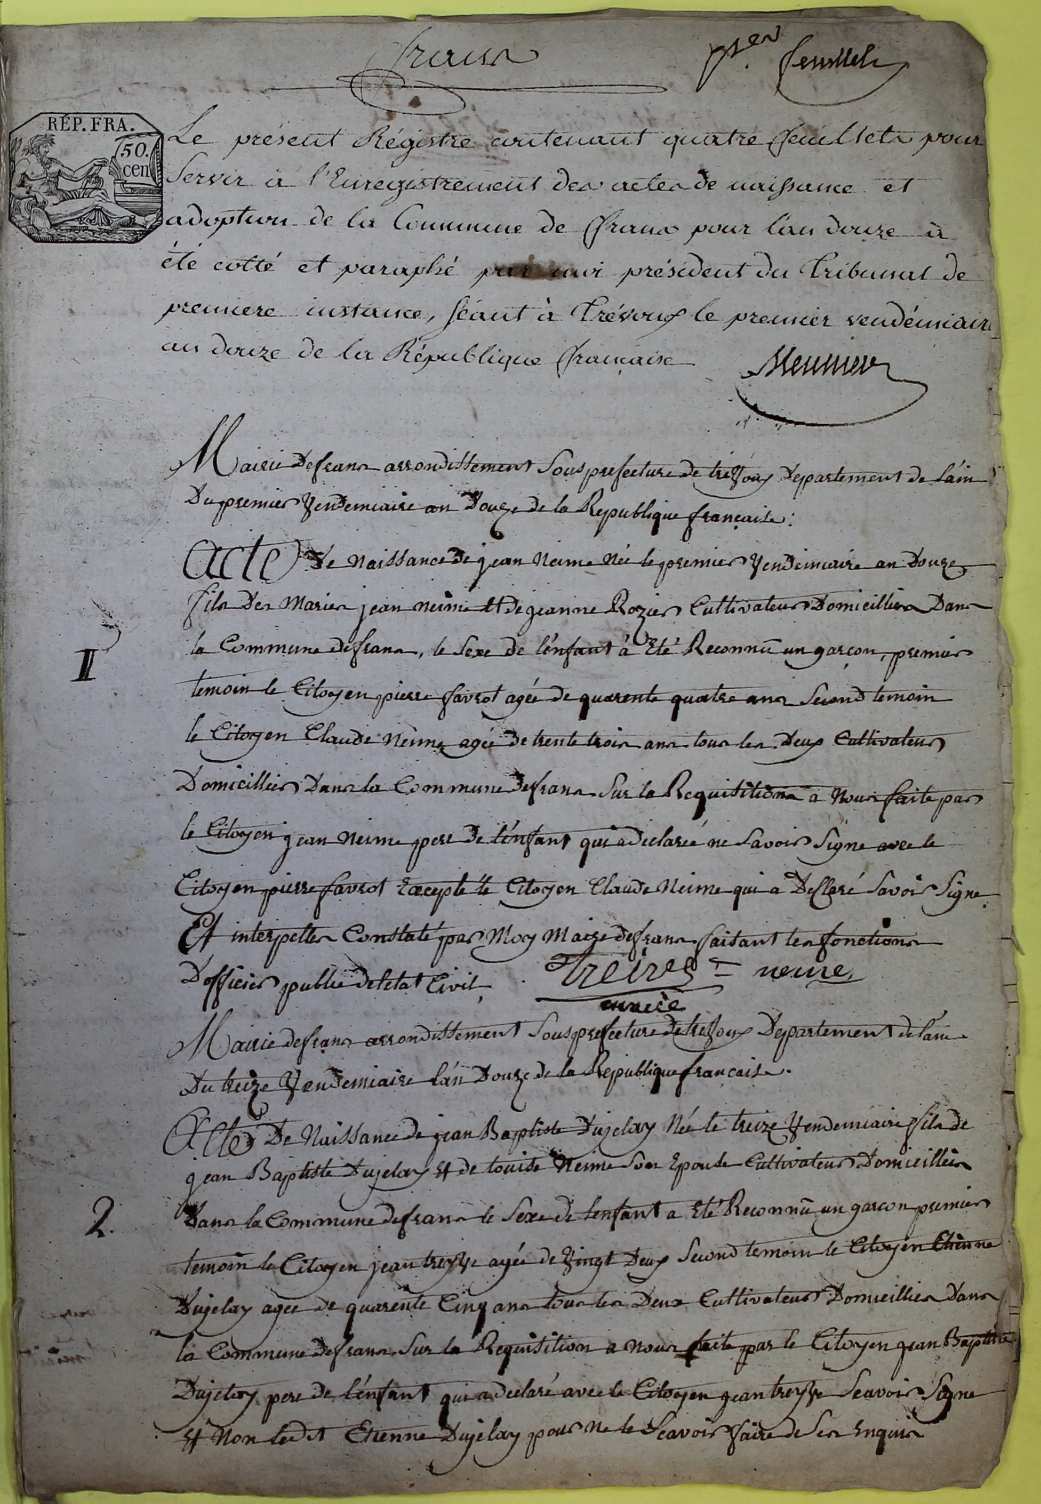 frans
1er feuillet
RÉP. FRA.
50. cen
Le présent Régistre contenant quatre feuillets pour
Servir à l'Enregistrement des actes de naissance et
adoption de la Commune de frans pour l'an douze à
été cotté et paraphé par moi président du Tribunal de
premiere instance, séant à Trévoux le premier vendémiaire
an douze de la République française
Meunier
Mairie de frans arrondissement Sous prefecture de trevoux Departement de L'ain
Du premier Vendemiaire an Douze de la Republique française.
Acte De Naissance de jean Neime Née le premier Vendemiaire an Douze
fils Des Maries jean neime Et de jeanne Rozier Cultivateurs Domicillies Dans
I
la Commune de frans, le Sexe de l'enfant à Eté Reconnû un garçon, premier
temoin le Citoyen pierre favrot agée de quarente quatre ans Second temoin
le Citoyen Claude Neime agée de trente trois ans tous les Deux Cultivateurs
Domicillies Dans la Commune de frans Sur la Requisitions a Nous faite par
le Citoyen jean neime pere de l'enfant qui à declareé ne Savoir Signe avec le
Citoyen pierre favrot Excepté le Citoyen Claude Neime qui a Decleré Savoir Signe
Et interpelles Constaté par Moy Maire de frans faisant les fonctions
D'officier public de letat Civil,
neime
maire
Mairie de frans arrondissement Sous prefecture de trevoux Departement de l'ain
Du treize Vendemiaire l'an Douze de la Republique française.
Acte De Naissance de jean Baptiste Dujelay Née le treize Vendemiaire fils de
jean Baptiste Dujelay Et de louise Neime Son Epouse Cultivateurs Domicillies
2.
Dans la Commune de frans le Sexe de lenfant a Eté Reconnû un garçon premier
temoin le Citoyen jean treyve agée de Vingt Deux Second temoin le Citoyen Etienne
Dujelay agee de quarente Cinq ans tous les Deux Cultivateurs Domicillies Dans
la Commune de frans Sur la Requisition a Nous faite par le Citoyen jean Baptiste
Dujelay pere de l'enfant qui a declaré avec le Citoyen jean treyve Seavoir Signe
Et Non ledit Etienne Dujelay pour Ne le Seavoir faire de Ses Enquis